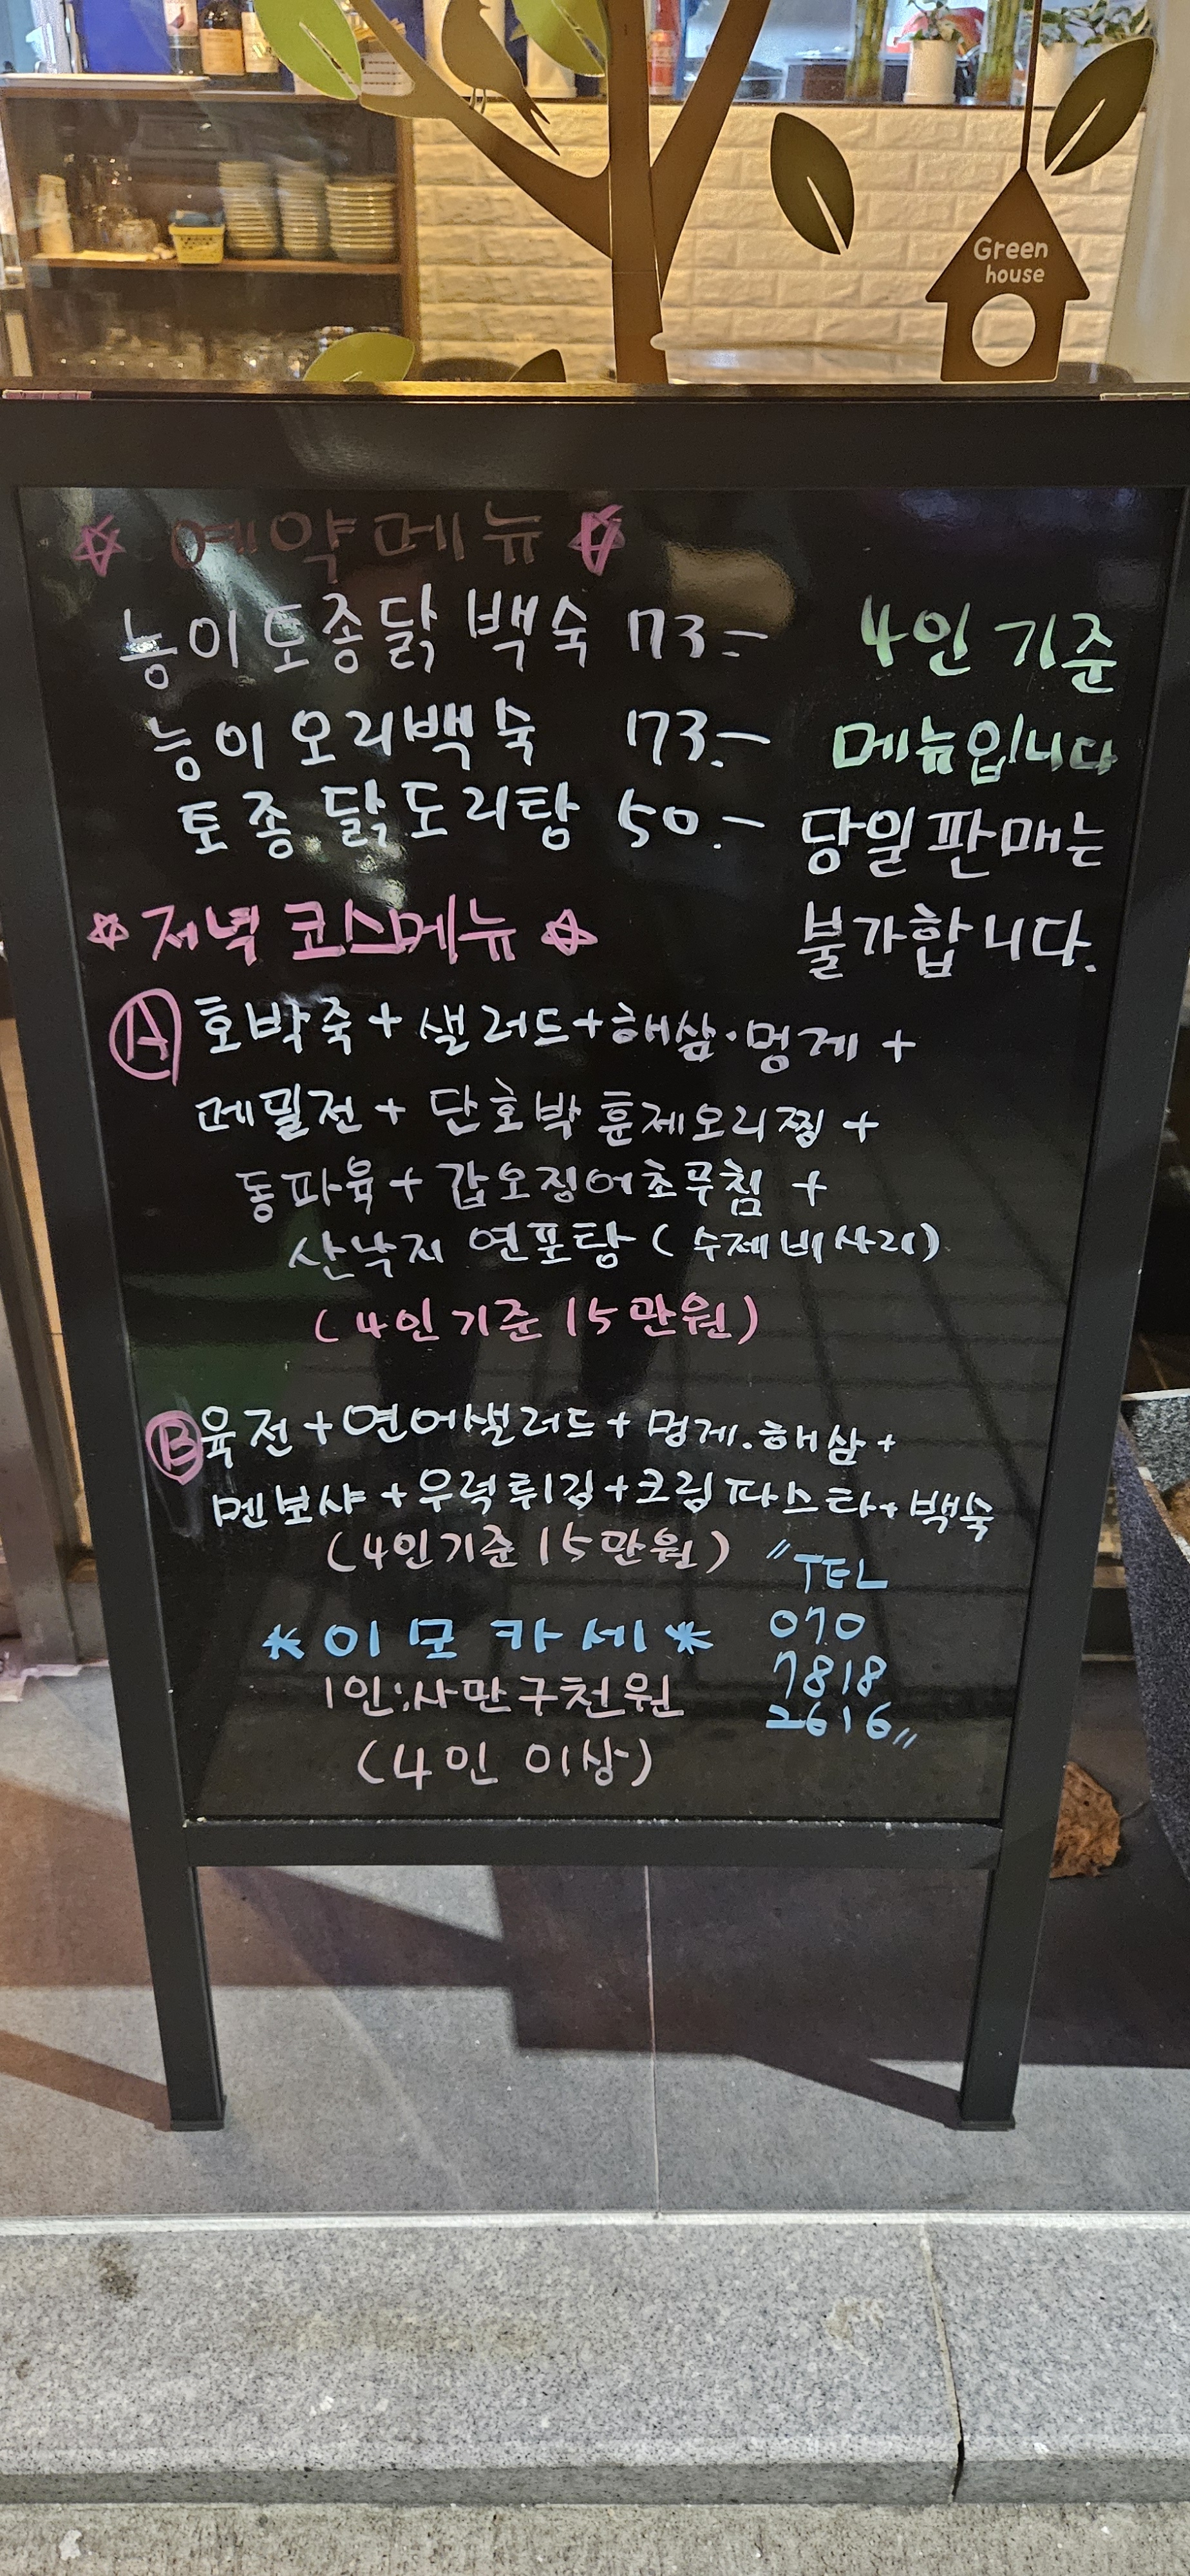 Green
house
☆ 예약메뉴 ☆
능이토종닭 백숙 173.-
능이오리백숙 173.-
토종닭도리탕 50.-
4인 기준
메뉴입니다
당일판매는
불가합니다.
☆ 저녁 코스메뉴 ☆
Ⓐ 호박죽 + 샐러드 + 해삼·멍게 +
메밀전 + 단호박 훈제오리찜 +
동파육 + 갑오징어초무침 +
산낙지 연포탕 (수제비사리)
(4인 기준 15만원)
Ⓑ 육전 + 연어샐러드 + 멍게.해삼 +
멘보샤 + 우럭튀김 + 크림파스타 + 백숙
(4인기준 15만원)
* 이모카세 *
1인:사만구천원
(4인 이상)
"TEL
070
7818
2616"